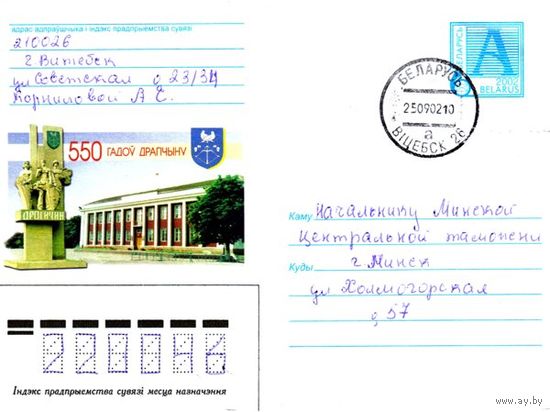 адрас адпраўшчыка і індэкс прадпрыемства сувязі
210026
г. Витебск
ул Советская д 23/34
Корниловой А Е.
550 ГАДОЎ ДРАГІЧЫНУ
ДРОГИЧИН
БЕЛАРУСЬ
А
2002
BELARUS
БЕЛАРУСЬ
25090210
а
ВІЦЕБСК 26
Каму Начальнику Минской
Центральной таможени
Куды г. Минск
ул Холмогорская
д 57
220046
Індэкс прадпрыемства сувязі месца назначэння
www.ay.by